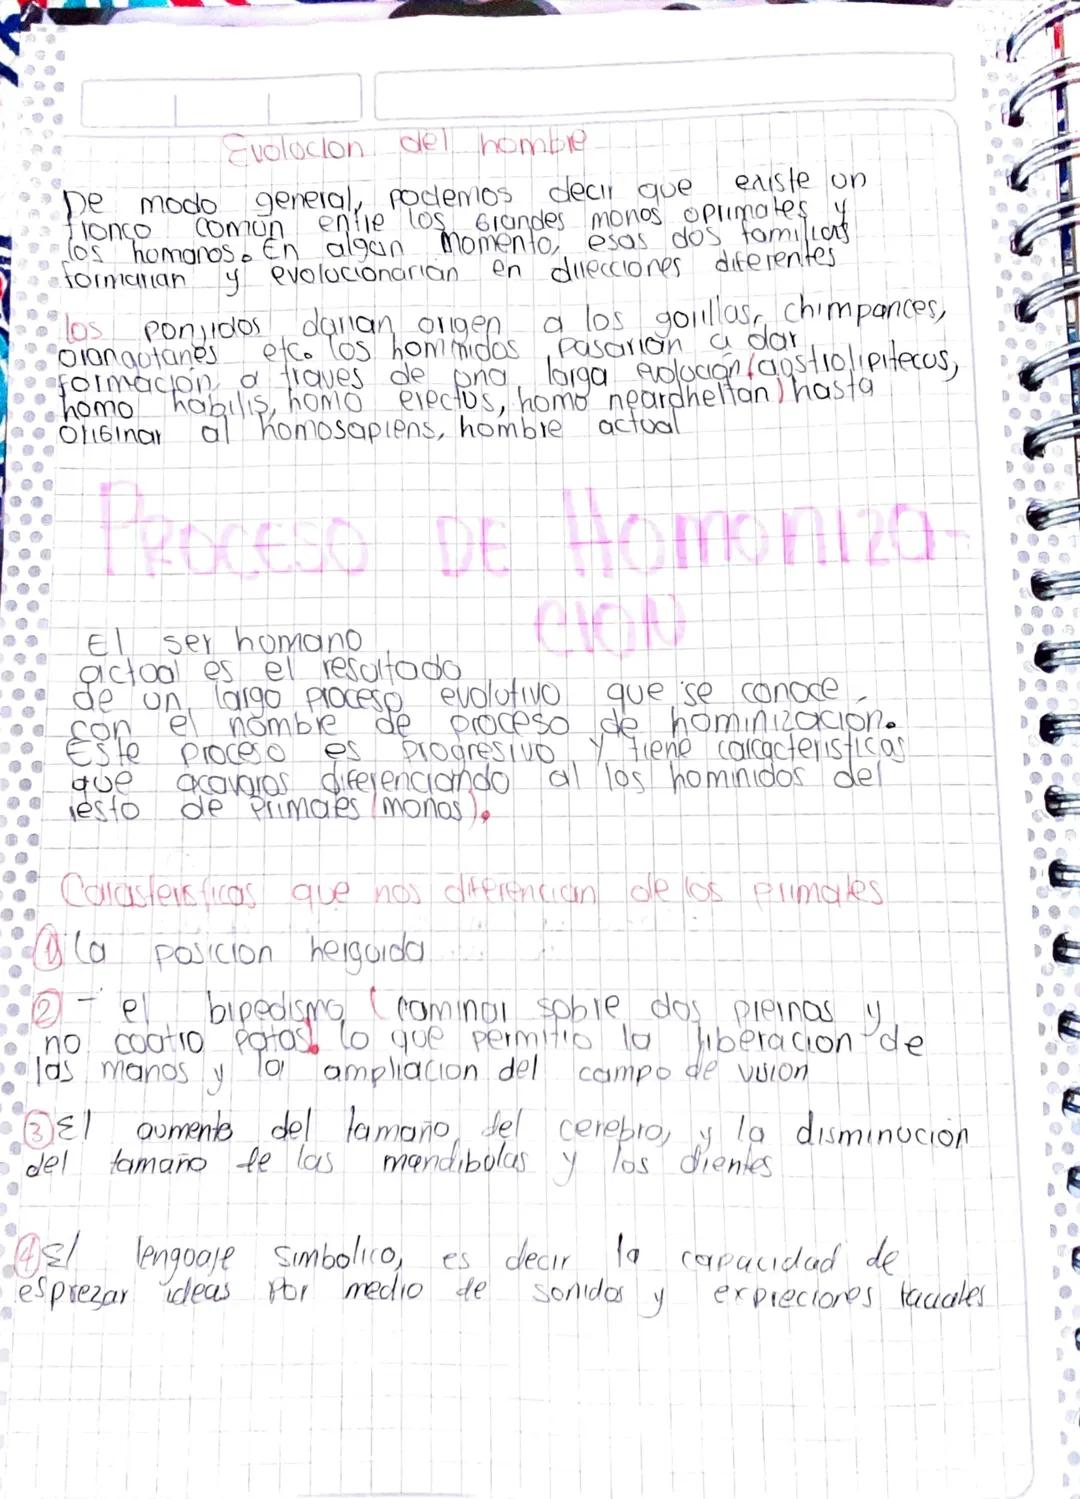 Evolucion del hombre
De modo general, podemos decir que existe un
tronco común entre los Grandes monos oprimates y
los humanos. En algun momento, esas dos familias
formarian y evolucionarian en direcciones diferentes
los ponjidos darian origen a los gorillas, chimpances,
orangutanes etc. los hominidos pasarian a dar
formación a traves de una larga evolución (agstrolipitecus,
homo habilis, homo erectus, homo neardheltan) hasta
oriGinar al homosapiens, hombre actual
PROCESO DE HomoNiza-
CION
El ser humano
actual es el resultado
de un largo proceso evolutivo que se conoce
con el nombre de proceso de hominización.
Este proceso es progresivo y tiene carcacteristicas
que acavaras diferenciando al los hominidos del
resto de primaes (monos).
Carasteristicas que nos diferencian de los primates
1) La posicion herguida
2) - el bipedismo (caminar sobre dos piernas y
no cuatro patas) lo que permitio la liberacion de
las manos y la ampliacion del campo de vision
3) El aumento del tamaño del cerebro, y la disminucion
del tamaño de las mandibulas y los dientes
4) El lenguaje simbolico, es decir la capacidad de
esprezar ideas por medio de sonidos y expreciones faciales